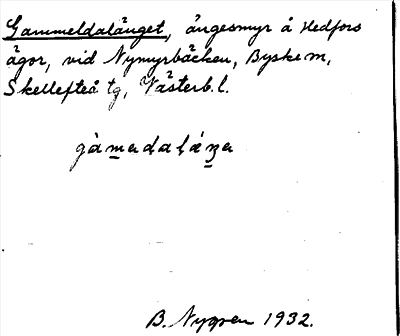 Gammeldalänget, ängesmyr å Hedfors
ägor, vid Nymyrbäcken, Byske sn,
Skellefteå tg, Västerb. l.
gàm̲adaḷáŋ̲a
B. Nygren 1932.